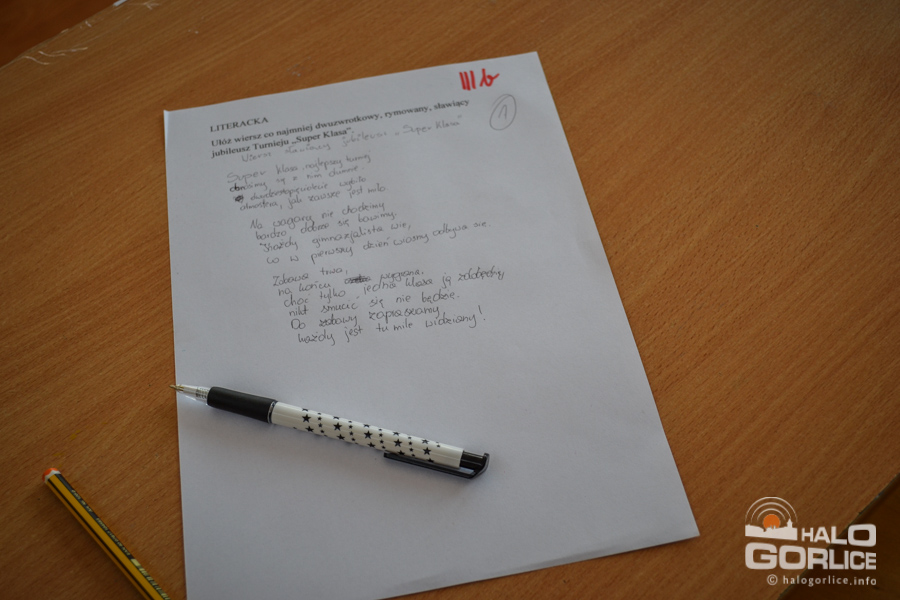 III b
1
LITERACKA
Ułóż wiersz co najmniej dwuzwrotkowy, rymowany, sławiący
jubileusz Turnieju „Super Klasa”
Wiersz sławiący jubileusz „Super Klasa”
Super klasa, najlepszy turniej
się z nim dumnie.
wybiło
atmosfera, jak zawsze jest miło.
Na wagary nie chodzimy
bardzo dobrze się bawimy.
Każdy gimnazjalista wie,
co w pierwszy dzień wiosny odbywa się.
Zabawa trwa,
na końcu wygrana,
choć tylko jedna klasa ją zdobędzie
nikt smucić się nie będzie.
Do zabawy zapraszamy,
każdy jest tu mile widziany!
HALO
GORLICE
© halogorlice.info